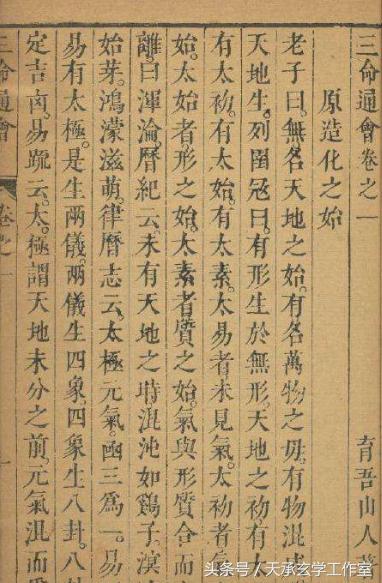 三命通會卷之一
育吾山人著
原造化之始
老子曰。無名天地之始。有名萬物之母。有物混成
天地生。列圄冦曰。有形生於無形。天地之初有太
有太初。有太始。有太素。太易者未見氣。太初者
始。太始者形之始。太素者質之始。氣與形質合而
離。曰渾淪。曆紀云。未有天地之時混沌如鷄子。溟
始芽。鴻濛滋萌。律曆志云。太極元氣函三爲一。易
易有太極。是生兩儀。兩儀生四象。四象生八卦。八
定吉凶。易䟽云。太極謂天地未分之前。元氣混而
三命通會
卷之一
一
头条号／天承玄学工作室